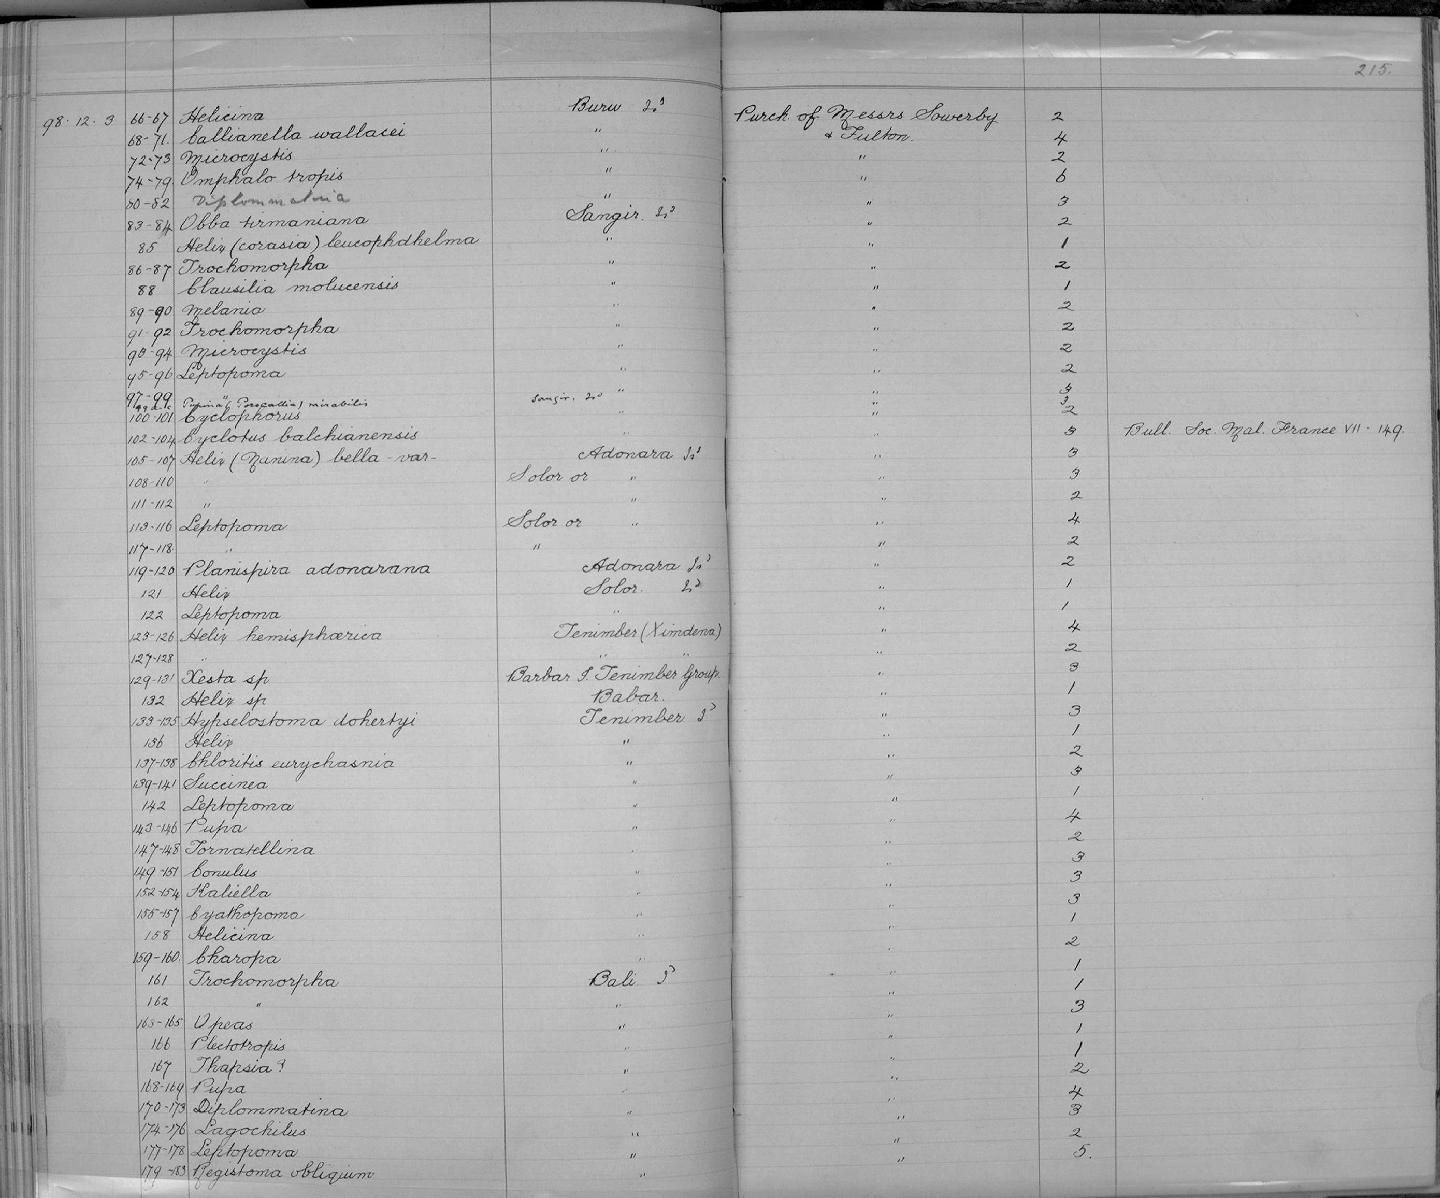 215.
98.12.3 66-67 Helicina Buru Is Purch of Messrs Sowerby 2
68-71. Callianella wallacei " & Fulton. 4
72-73 Microcystis " " 2
74-79. Omphalotropis " " 6
80-82 Diplommatina " " 3
83-84 Obba sirmaniana Sangir. Is " 2
85 Helix (corasia) leucophdhelma " " 1
86-87 Trochomorpha " " 2
88 Clausilia molucensis " " 1
89-90 Melania " " 2
91-92 Trochomorpha " " 2
93-94 Microcystis " " 2
95-96 Leptopoma " " 2
97-99 " " " 3
Pupina ( ) mirabilis Sangir. Is " 3
100-101 Cyclophorus " " 2
102-104 Cyclotus balchianensis " " 3 Bull. Soc. Mal. France VII. 149.
105-107 Helix (Nanina) bella - var- Adonara Is " 3
108-110 " Solor or " " 3
111-112 " " " 2
113-116 Leptopoma Solor or " " 4
117-118. " " " 2
119-120 Planispira adonarana Adonara Is " 2
121 Helix Solor. Is " 1
122 Leptopoma " " 1
123-126 Helix hemisphærica Tenimber (Ximdena) " 4
127-128 " " " " 2
129-131 Xesta sp Barbar I. Tenimber Group. " 3
132 Helix sp Babar. " 1
133-135 Hypselostoma dohertyi Tenimber Is " 3
136 Helix " " 1
137-138 Chloritis eurychasnia " " 2
139-141 Succinea " " 3
142 Leptopoma " " 1
143-146 Pupa " " 4
147-148 Tornatellina " " 2
149-151 Conulus " " 3
152-154 Kaliella " " 3
155-157 Cyathopoma " " 3
158 Helicina " " 1
159-160. Charopa " " 2
161 Trochomorpha Bali Is " 1
162 " " " 1
163-165 Opeas " " 3
166 Plectotropis " " 1
167 Thapsia? " " 1
168-169 Pupa " " 2
170-173 Diplommatina " " 4
174-176 Lagochilus " " 3
177-178 Leptopoma " " 2
179-183 Registoma obliqium " " 5.